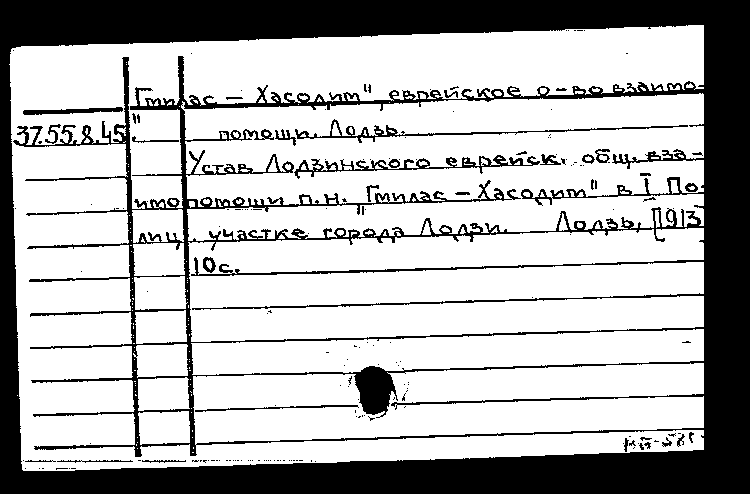 "Гмилас – Хасодим", еврейское о-во взаимо-
37.55.8.45. помощи. Лодзь.
Устав Лодзинского еврейск. общ. вза-
имопомощи п.н. "Гмилас – Хасодим" в I По-
лиц. участке города Лодзи. Лодзь, [1913]
10с.